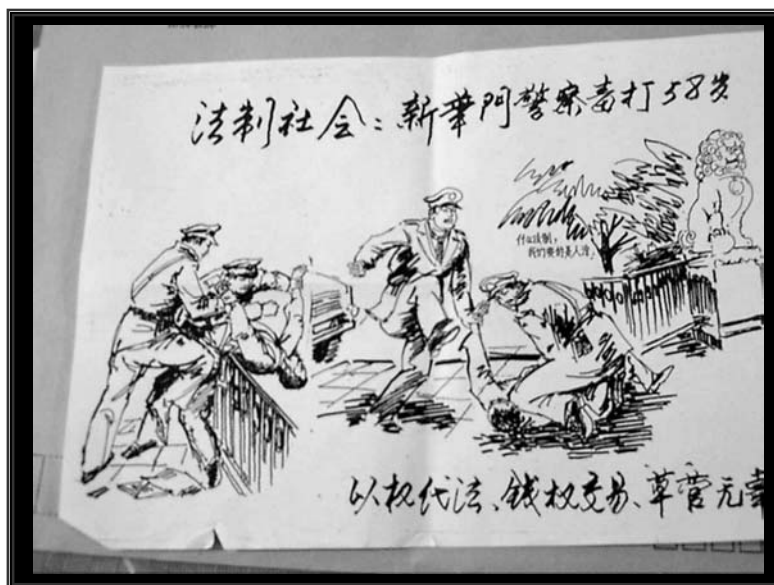 法制社会：新華门警察毒打58岁
什么法制，
我们要的是人治，
以权代法、钱权交易、草菅无辜